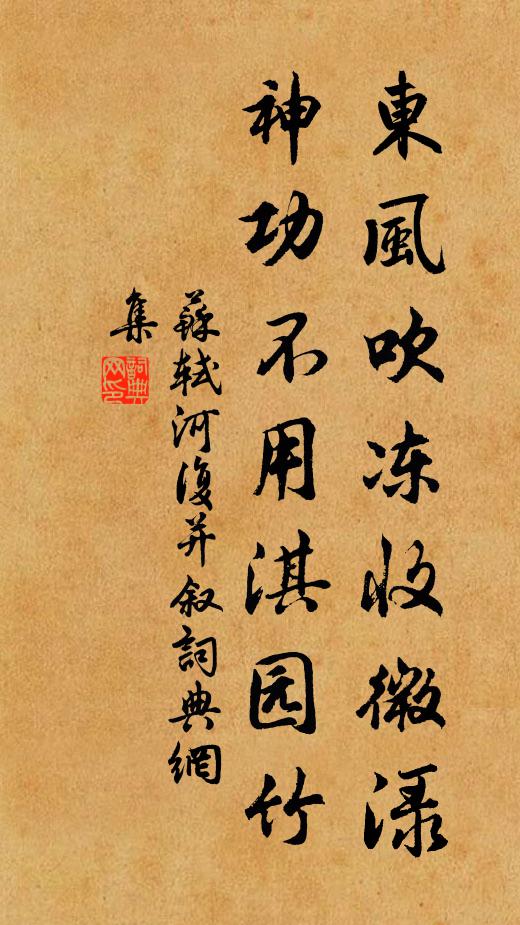 東風吹冻收微渌
神功不用淇园竹
蘇軾河復并叙詞典網
集
詞典
网印